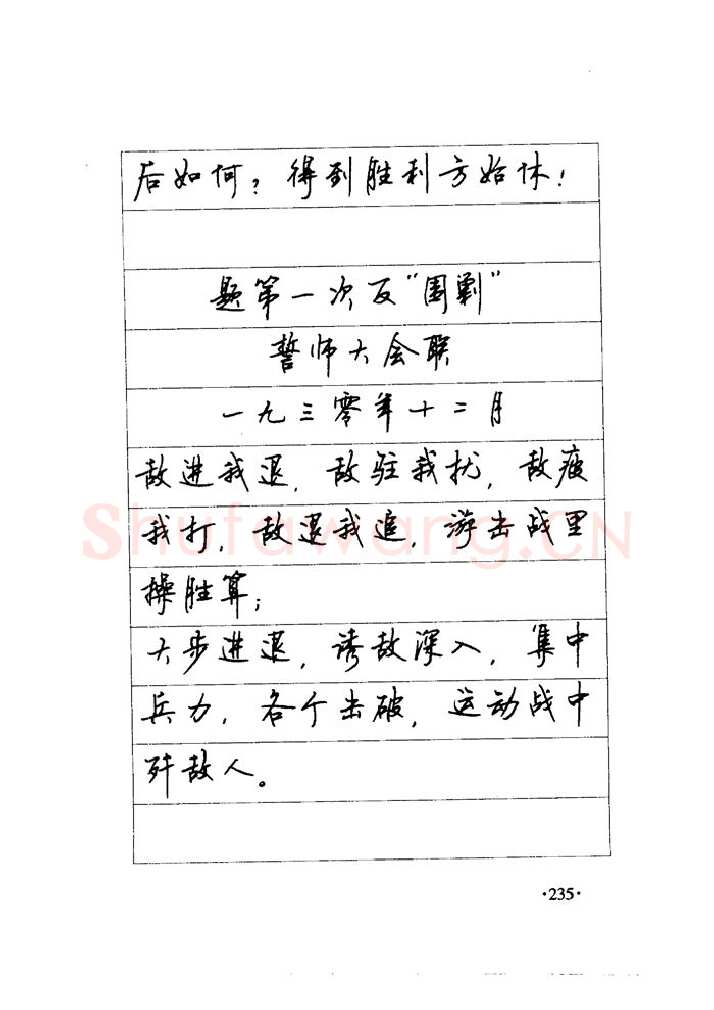 后如何？得到胜利方始休！
题第一次反“围剿”
誓师大会联
一九三零年十二月
敌进我退，敌驻我扰，敌疲
我打，敌退我追，游击战里
操胜算；
大步进退，诱敌深入，集中
兵力，各个击破，运动战中
歼敌人。
Shufawang.CN
·235·